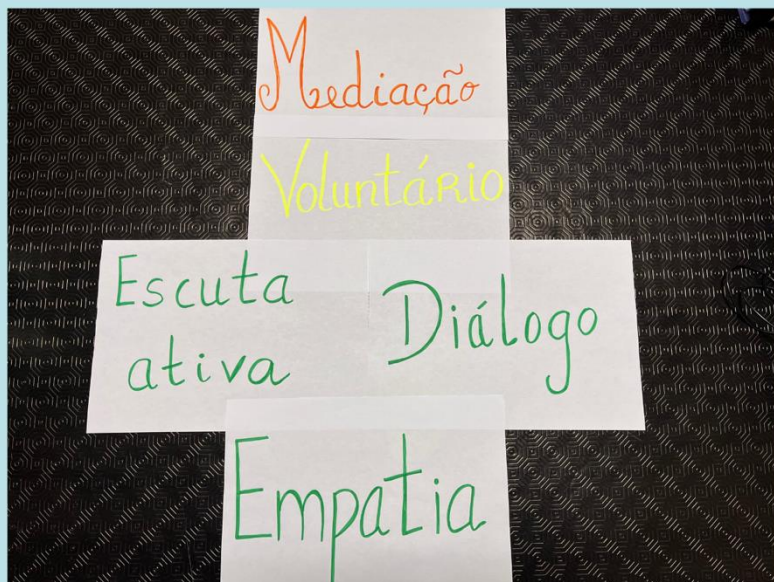 Mediação
Voluntário
Escuta
ativa
Diálogo
Empatia